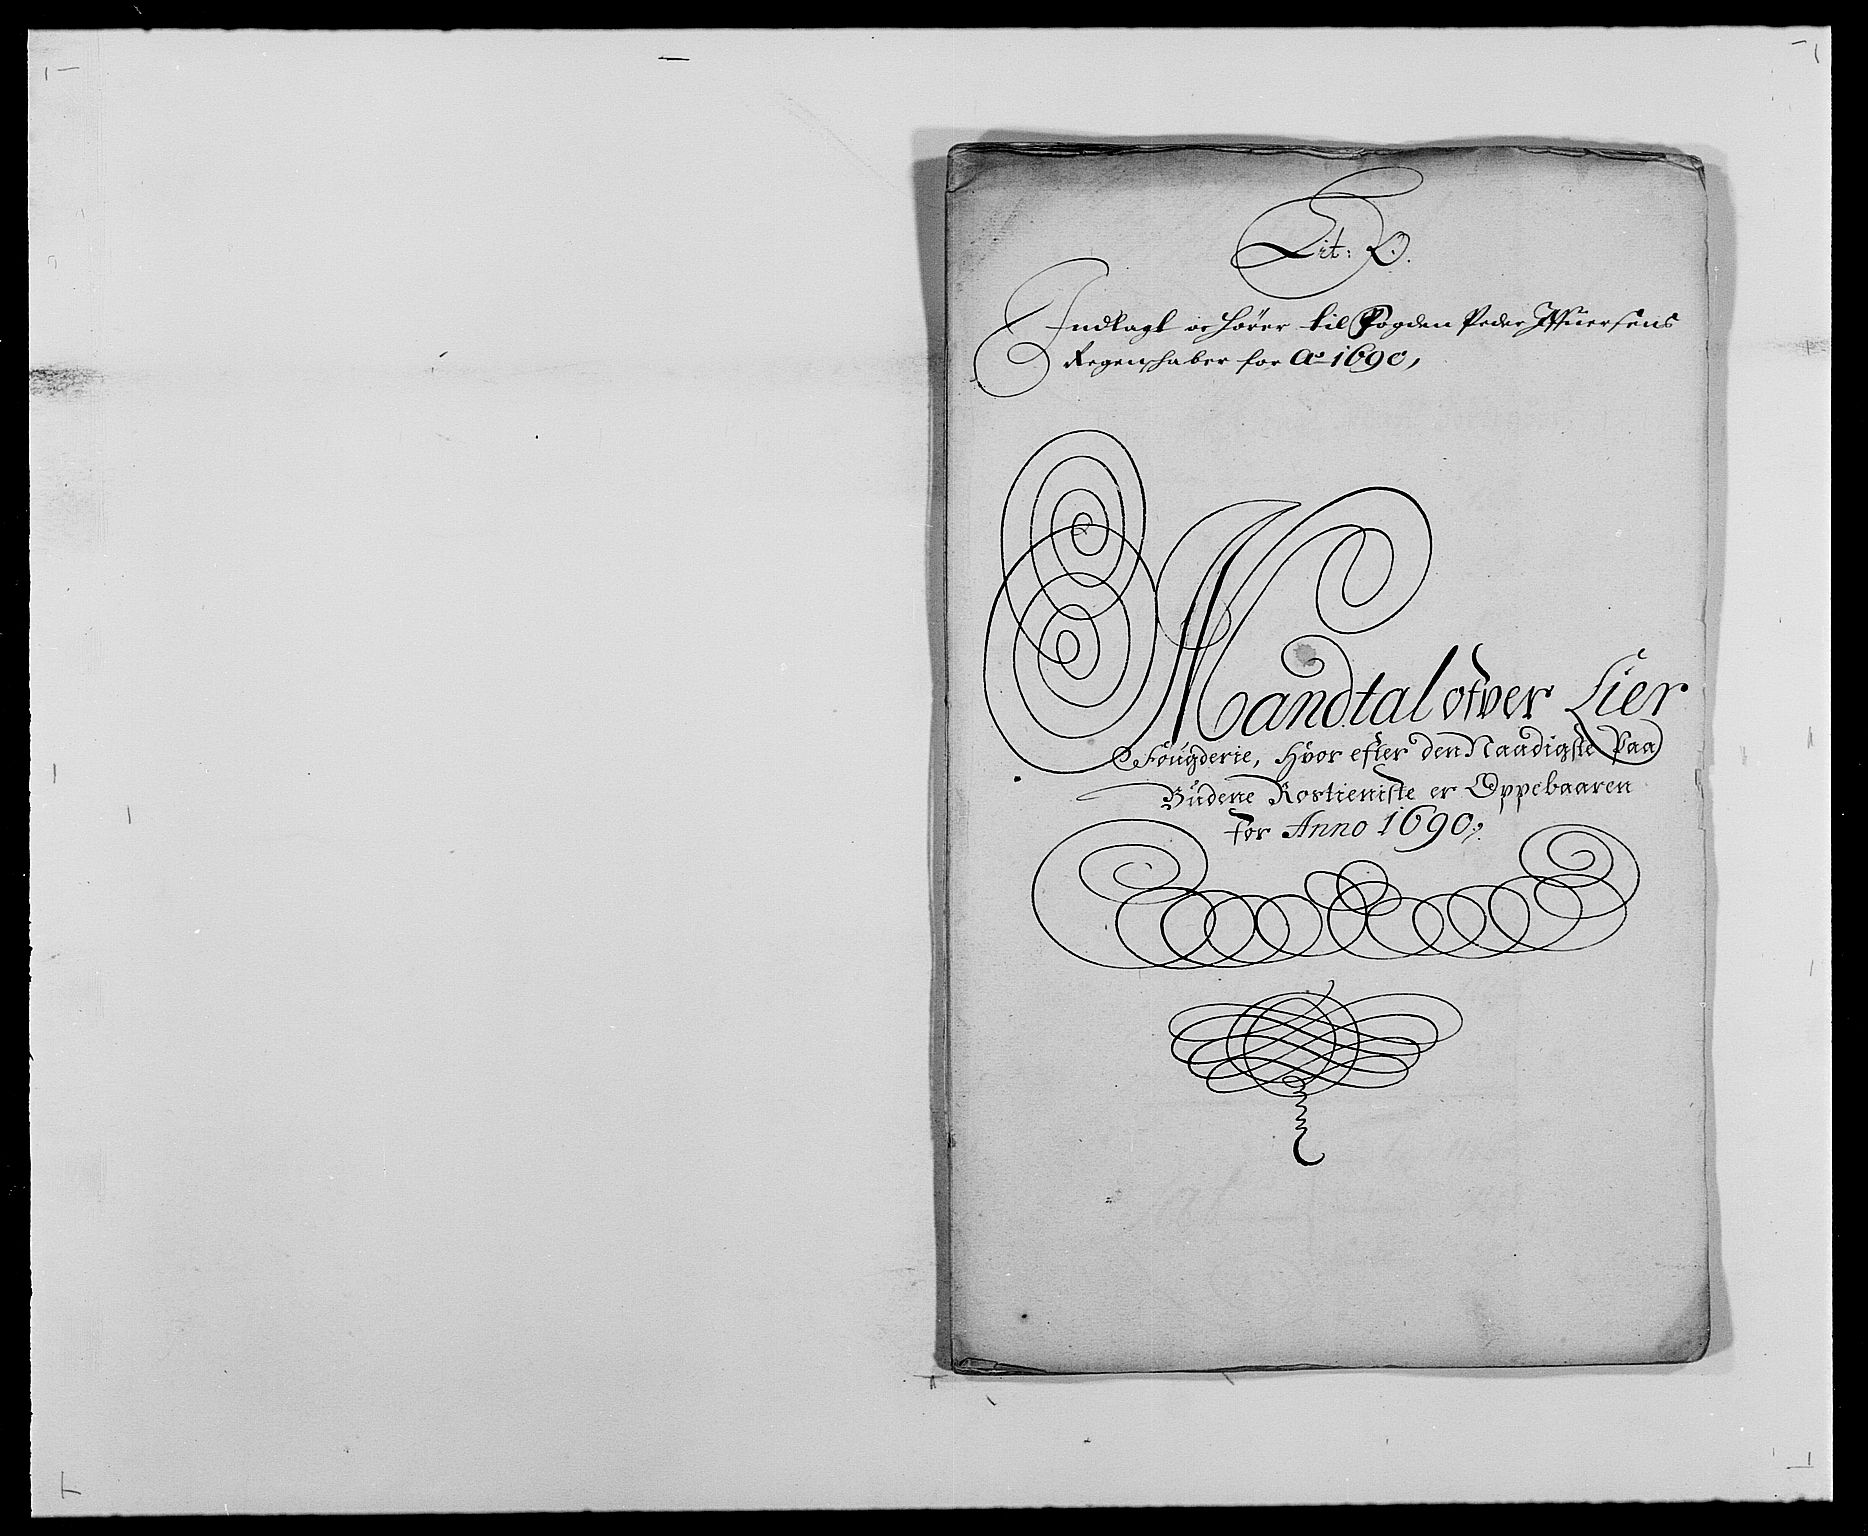 Lit: O.
Indlagt oc hörer til Fogden Peder Iffuersens
Regenschaber for Ao 1690,
Mandtal ofver Lier
Fougderie, Hvor efter den Naadigste Paa
Budene Rostieniste er Oppebaaren
for Anno 1690,